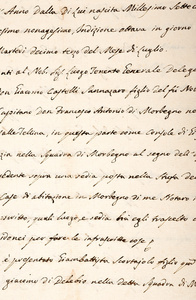 Anno dalla di Lui nascita Millesimo Sette c
simo nonagesimo, Indizione ottava in giorno
Martedì decimo terzo del Mese di Luglio.
nti al Nob. Sig. Luogo Tenente Generale Delega
Don Eugenio Castelli Sannazaro figlio del fu Nob
Capitano Don Francesco Antonio di Morbegno ne
Valle Tellina, in questa parte come Console di Gi
izia nella Squadra di Morbegno al segno dell
sedente sopra una sedia posta nella Stuffa de
Case di abitazione in Morbegno di me Notaro i
scritto, qual luogo, e sedia
per fare le infrascritte cose
è presentato Giambattista figlio qu
giacomo di nella detta Squadra di M